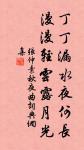 丁丁漏水夜何長
漫漫輕雲露月光
張仲素秋夜曲詞典網
集